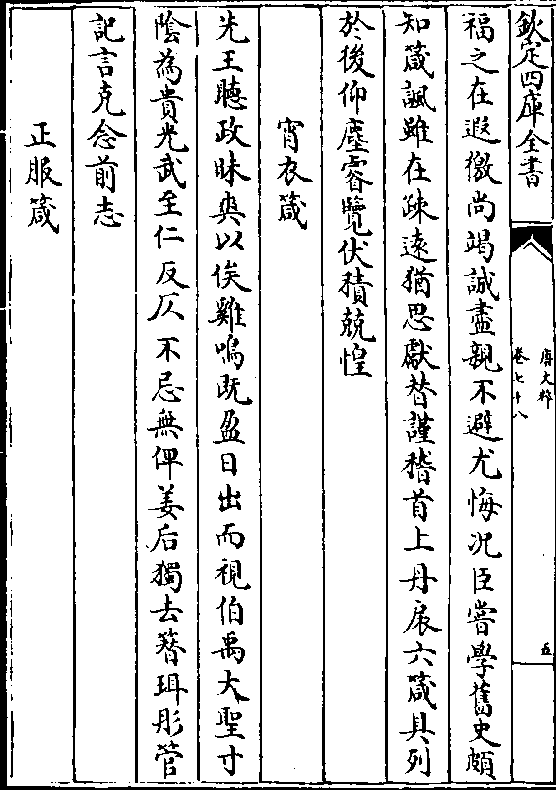 欽定四庫全書
唐文粹
卷七十八
五
福之在遐徼尚竭誠盡親不避尤悔况臣嘗學舊史頗
知箴諷雖在疎遠猶思獻替謹稽首上丹扆六箴具列
於後仰塵睿覽伏積兢惶
宵衣箴
先王聽政昧爽以俟雞鳴既盈日出而視伯禹大聖寸
陰為貴光武至仁反仄不忌無俾姜后獨去簪珥彤管
記言克念前志
正服箴